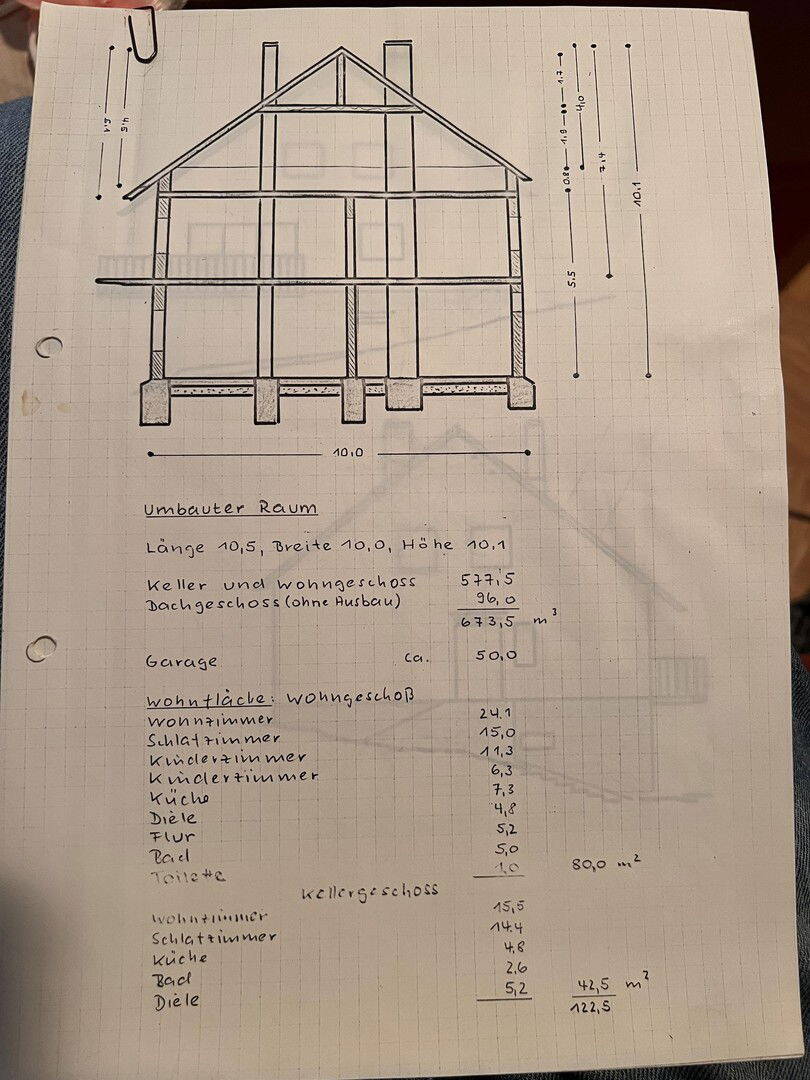 5.1
4.5
1.7
4,0
1.9
0.8
7,4
10.1
5,5
10,0
Umbauter Raum
Länge 10,5, Breite 10,0, Höhe 10,1
Keller und Wohngeschoss 577,5
Dachgeschoss (ohne Ausbau) 96,0
673,5 m³
Garage ca. 50,0
Wohnfläche: Wohngeschoß
Wohnzimmer 24.1
Schlafzimmer 15,0
Kinderzimmer 11,3
Kinderzimmer 6,3
Küche 7,3
Diele 4,8
Flur 5,2
Bad 5,0
Toilette 1,0 80,0 m²
Kellergeschoss
Wohnzimmer 15,5
Schlafzimmer 14.4
Küche 4,8
Bad 2,6
Diele 5,2 42,5 m²
122,5